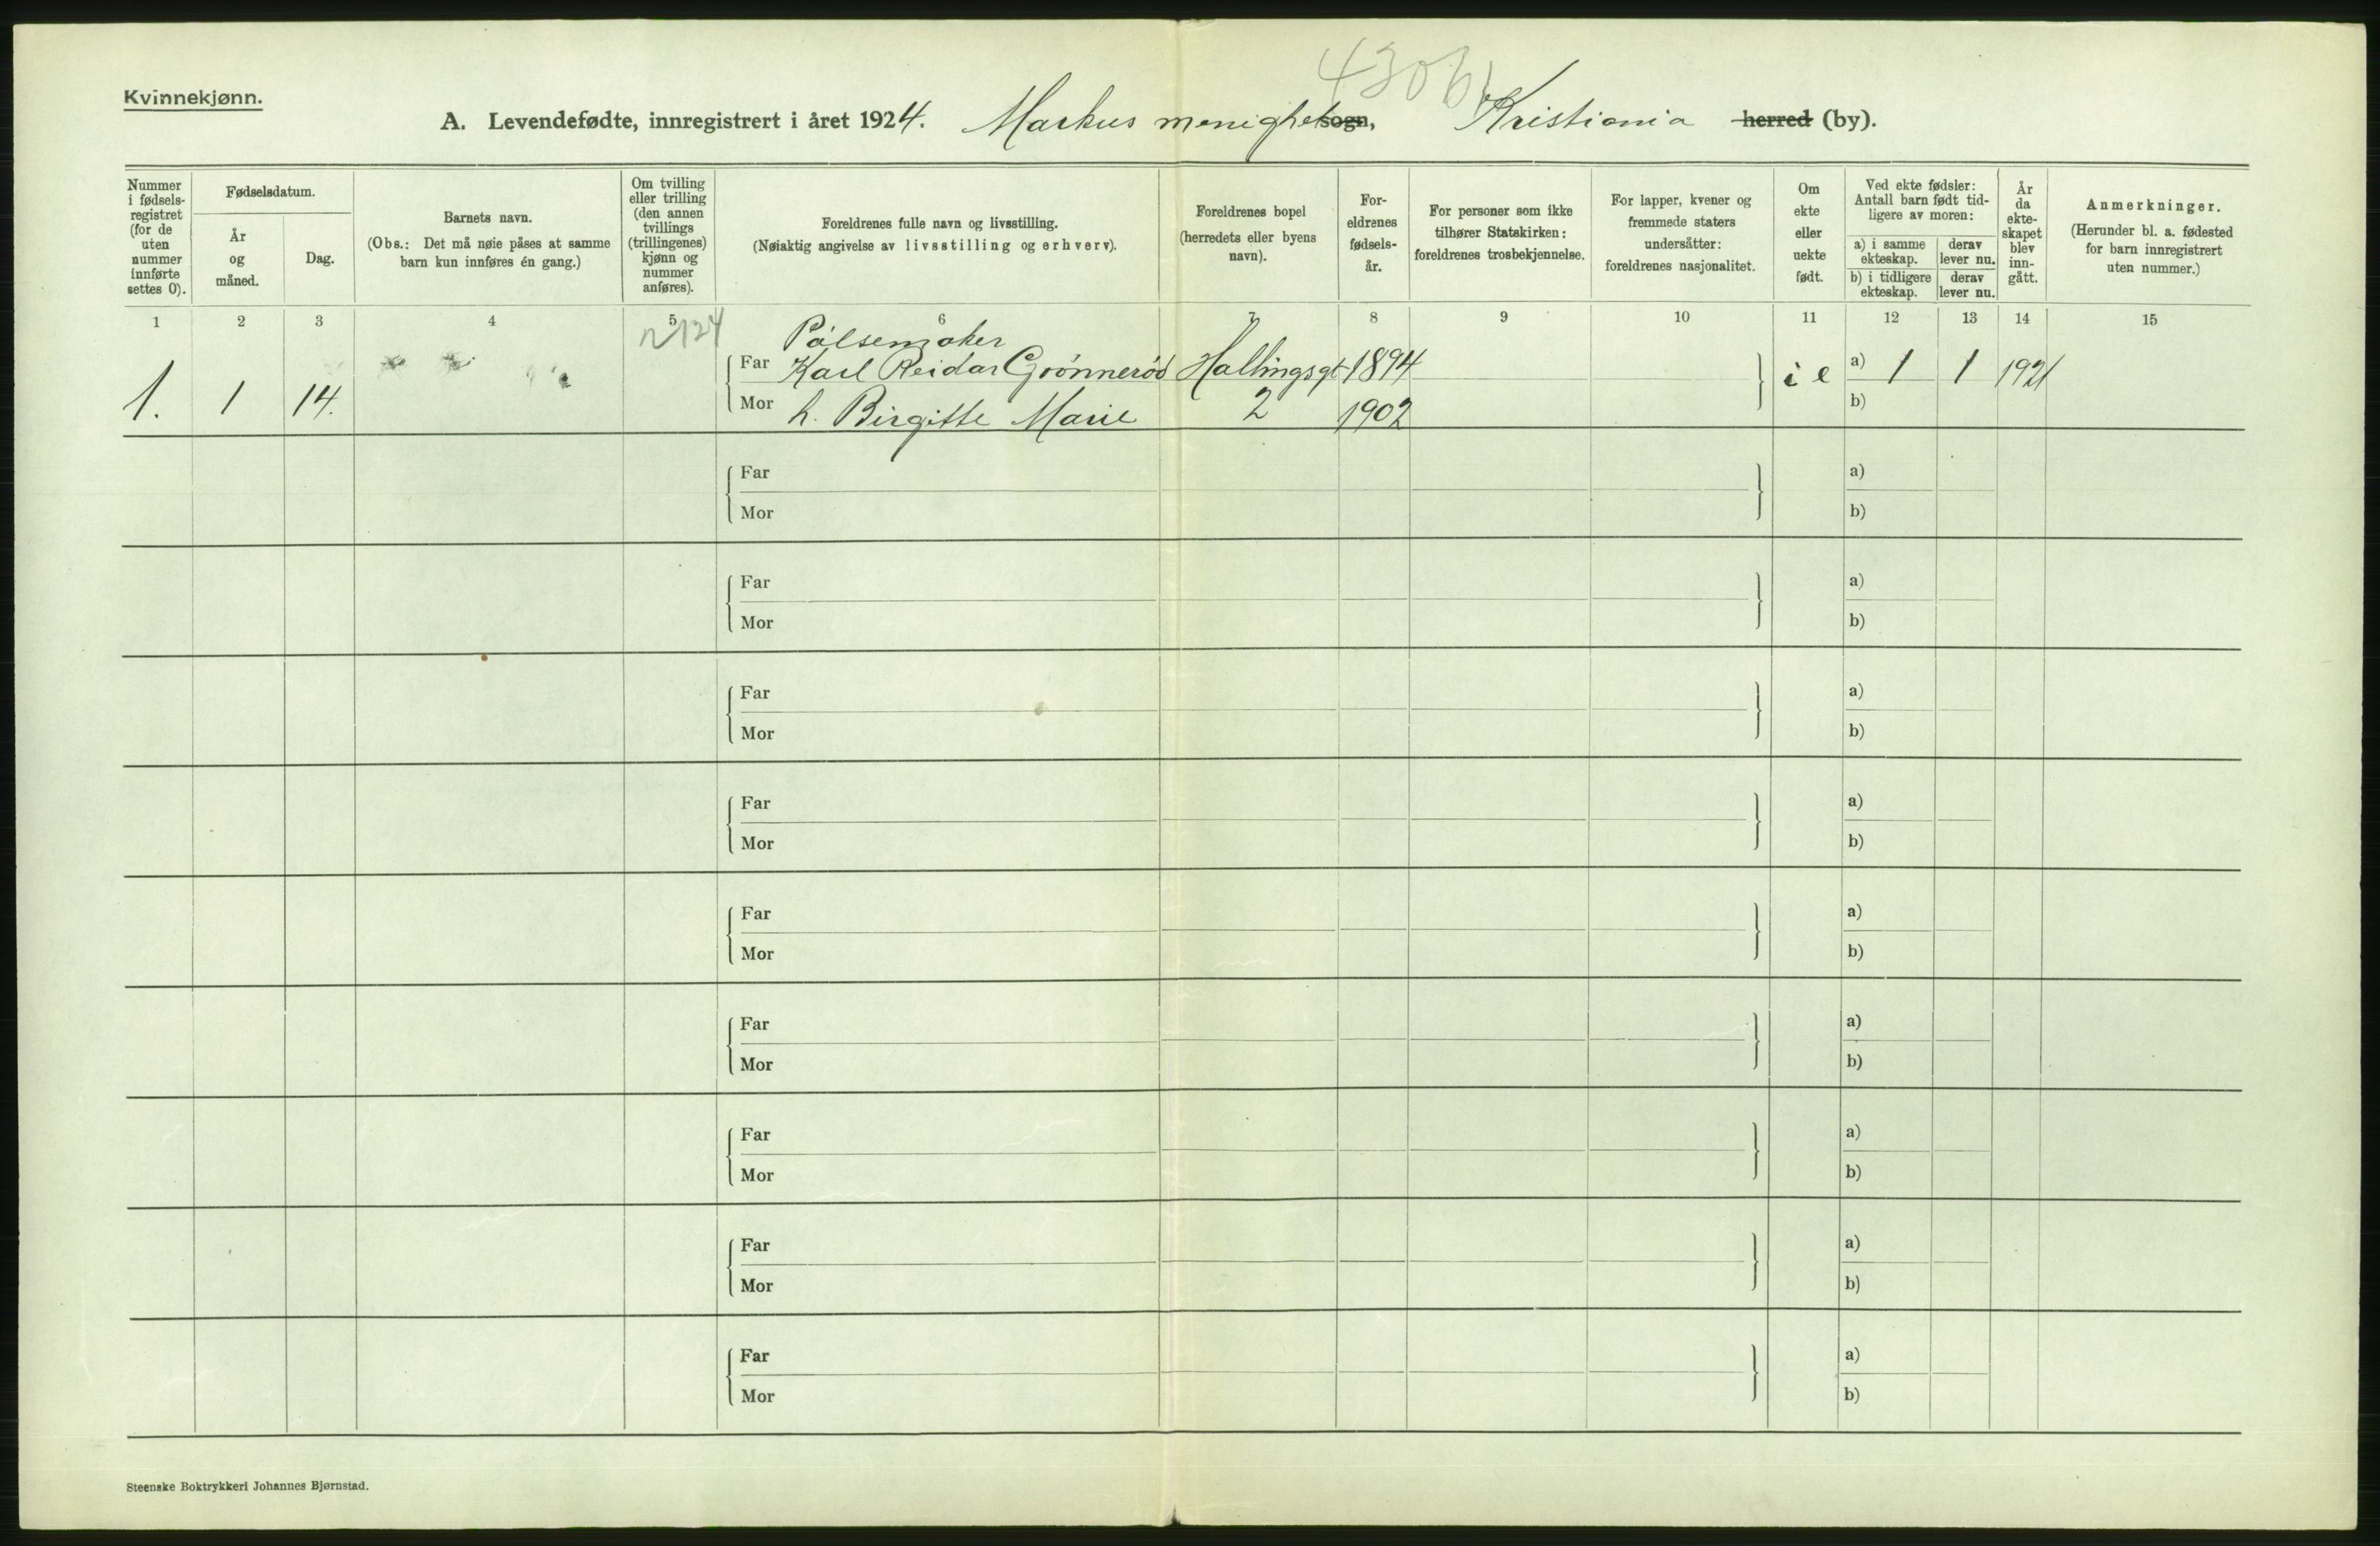 4306
Kvinnekjønn.
A. Levendefødte, innregistrert i året 1924. Markus menighet sogn, Kristiania herred (by).
Nummer i fødsels-registret (for de uten nummer innførte settes 0).
Fødselsdatum.
År og måned.
Dag.
Barnets navn.
(Obs.: Det må nøie påses at samme barn kun innføres én gang.)
Om tvilling eller trilling (den annen tvillings (trillingenes) kjønn og nummer anføres).
Foreldrenes fulle navn og livsstilling.
(Nøiaktig angivelse av livsstilling og erhverv).
Foreldrenes bopel (herredets eller byens navn).
For-eldrenes fødsels-år.
For personer som ikke tilhører Statskirken: foreldrenes trosbekjennelse.
For lapper, kvener og fremmede staters undersåtter: foreldrenes nasjonalitet.
Om ekte eller uekte født.
Ved ekte fødsler: Antall barn født tid-ligere av moren:
a) i samme ekteskap.
derav lever nu.
b) i tidligere ekteskap.
derav lever nu.
År da ekte-skapet blev inn-gått.
Anmerkninger.
(Herunder bl. a. fødested for barn innregistrert uten nummer.)
1 2 3 4 5 6 7 8 9 10 11 12 13 14 15
124
Pölsemaker
Far Karl Reidar Grönneröd Hallingsgt 1894 i e a) 1 1 1921
1. 1 14. Mor h. Birgitte Marie 2 1902 b)
Far a)
Mor b)
Far a)
Mor b)
Far a)
Mor b)
Far a)
Mor b)
Far a)
Mor b)
Far a)
Mor b)
Far a)
Mor b)
Far a)
Mor b)
Far a)
Mor b)
Steenske Boktrykkeri Johannes Bjørnstad.